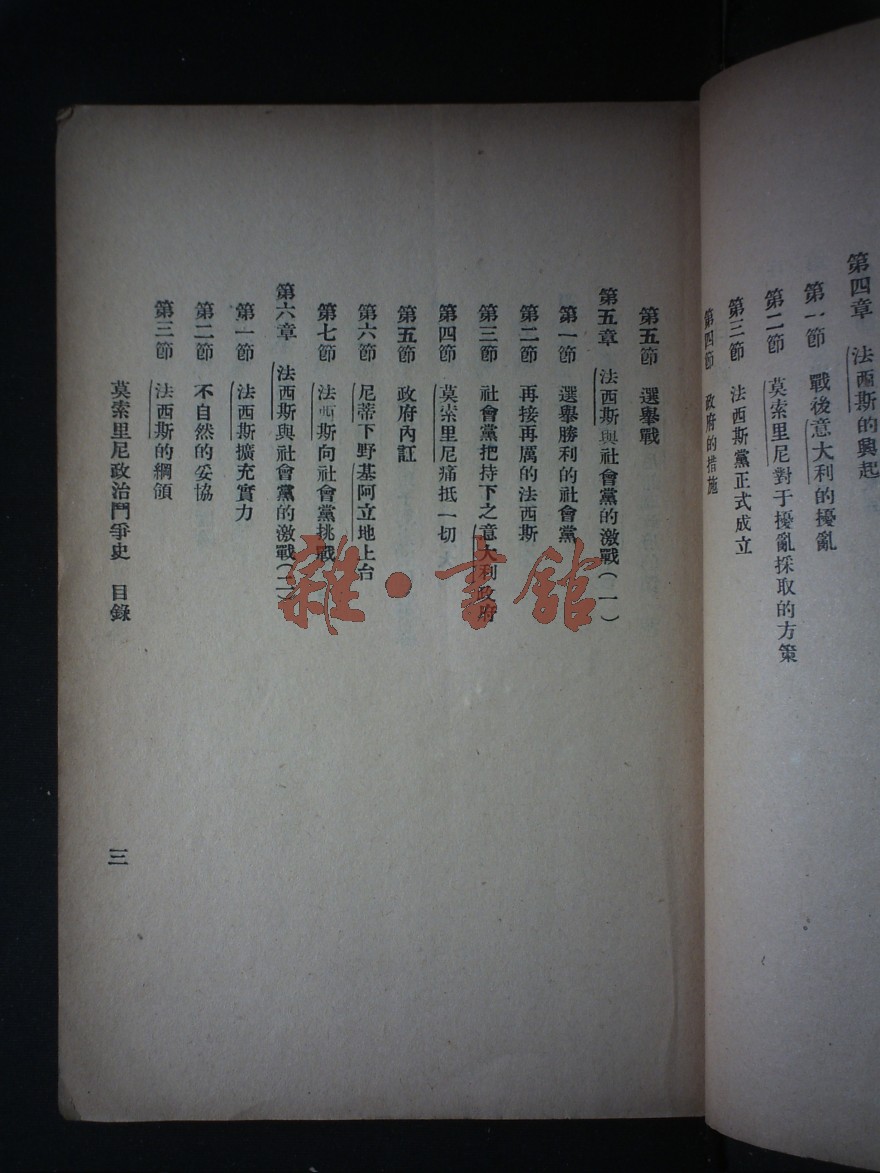 第四章　法西斯的興起
第一節　戰後意大利的擾亂
第二節　莫索里尼對于擾亂採取的方策
第三節　法西斯黨正式成立
第四節　政府的措施
第五節　選舉戰
第五章　法西斯與社會黨的激戰(一)
第一節　選舉勝利的社會黨
第二節　再接再厲的法西斯
第三節　社會黨把持下之意大利政府
第四節　莫索里尼痛抵一切
第五節　政府內訌
第六節　尼蒂下野基阿立地上台
第七節　法西斯向社會黨挑戰
第六章　法西斯與社會黨的激戰(二)
第一節　法西斯擴充實力
第二節　不自然的妥協
第三節　法西斯的綱領
莫索里尼政治鬥爭史　目錄
三
雜·書館